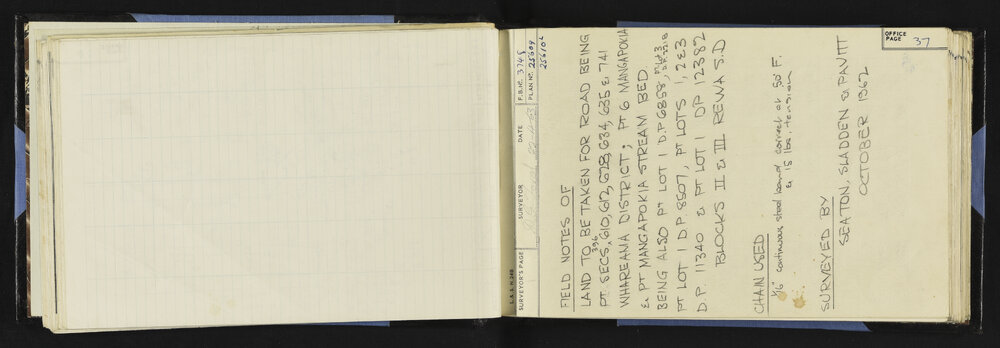 OFFICE PAGE 37
L. & S. H 24B
SURVEYOR'S PAGE
SURVEYOR
DATE
F.B. Nº. 3745
PLAN Nº. 25609
25610
FIELD NOTES OF
LAND TO BE TAKEN FOR ROAD BEING
PT. SECS, 396 610, 612, 628, 634, 635 & 741
WHAREAMA DISTRICT; PT 6 MANGAPOKIA
& PT MANGAPOKIA STREAM BED.
BEING ALSO PT LOT 1 D.P 6858,
PT LOT 1 D P 8507, PT LOTS 1, 2 & 3
D.P. 11340 & PT LOT 1 DP 12382
BLOCKS II & III REWA S.D
CHAIN USED
continuous steel band correct at 50° F.
& 15 lbs. tension
SURVEYED BY
SEATON, SLADDEN & PAVITT
OCTOBER 1962